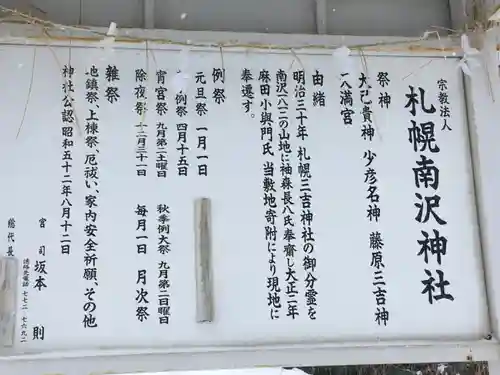 宗教法人
札幌南沢神社
祭神
大己貴神 少彦名神 藤原三吉神
八満宮
由緒
明治三十年 札幌三吉神社の御分霊を
南沢一八二の山地に袖森長八氏奉齋し大正二年
麻田小與門氏 当敷地寄附により現地に
奉遷す。
例祭
元旦祭 一月一日
例祭 四月十五日
宵宮祭 九月第二土曜日 秋季例大祭 九月第二日曜日
除夜祭 十二月三十一日 毎月一日 月次祭
雑祭
地鎮祭、上棟祭、厄祓い、家内安全祈願、その他
神社公認 昭和五十二年八月十二日
宮司 坂本 則
総代長